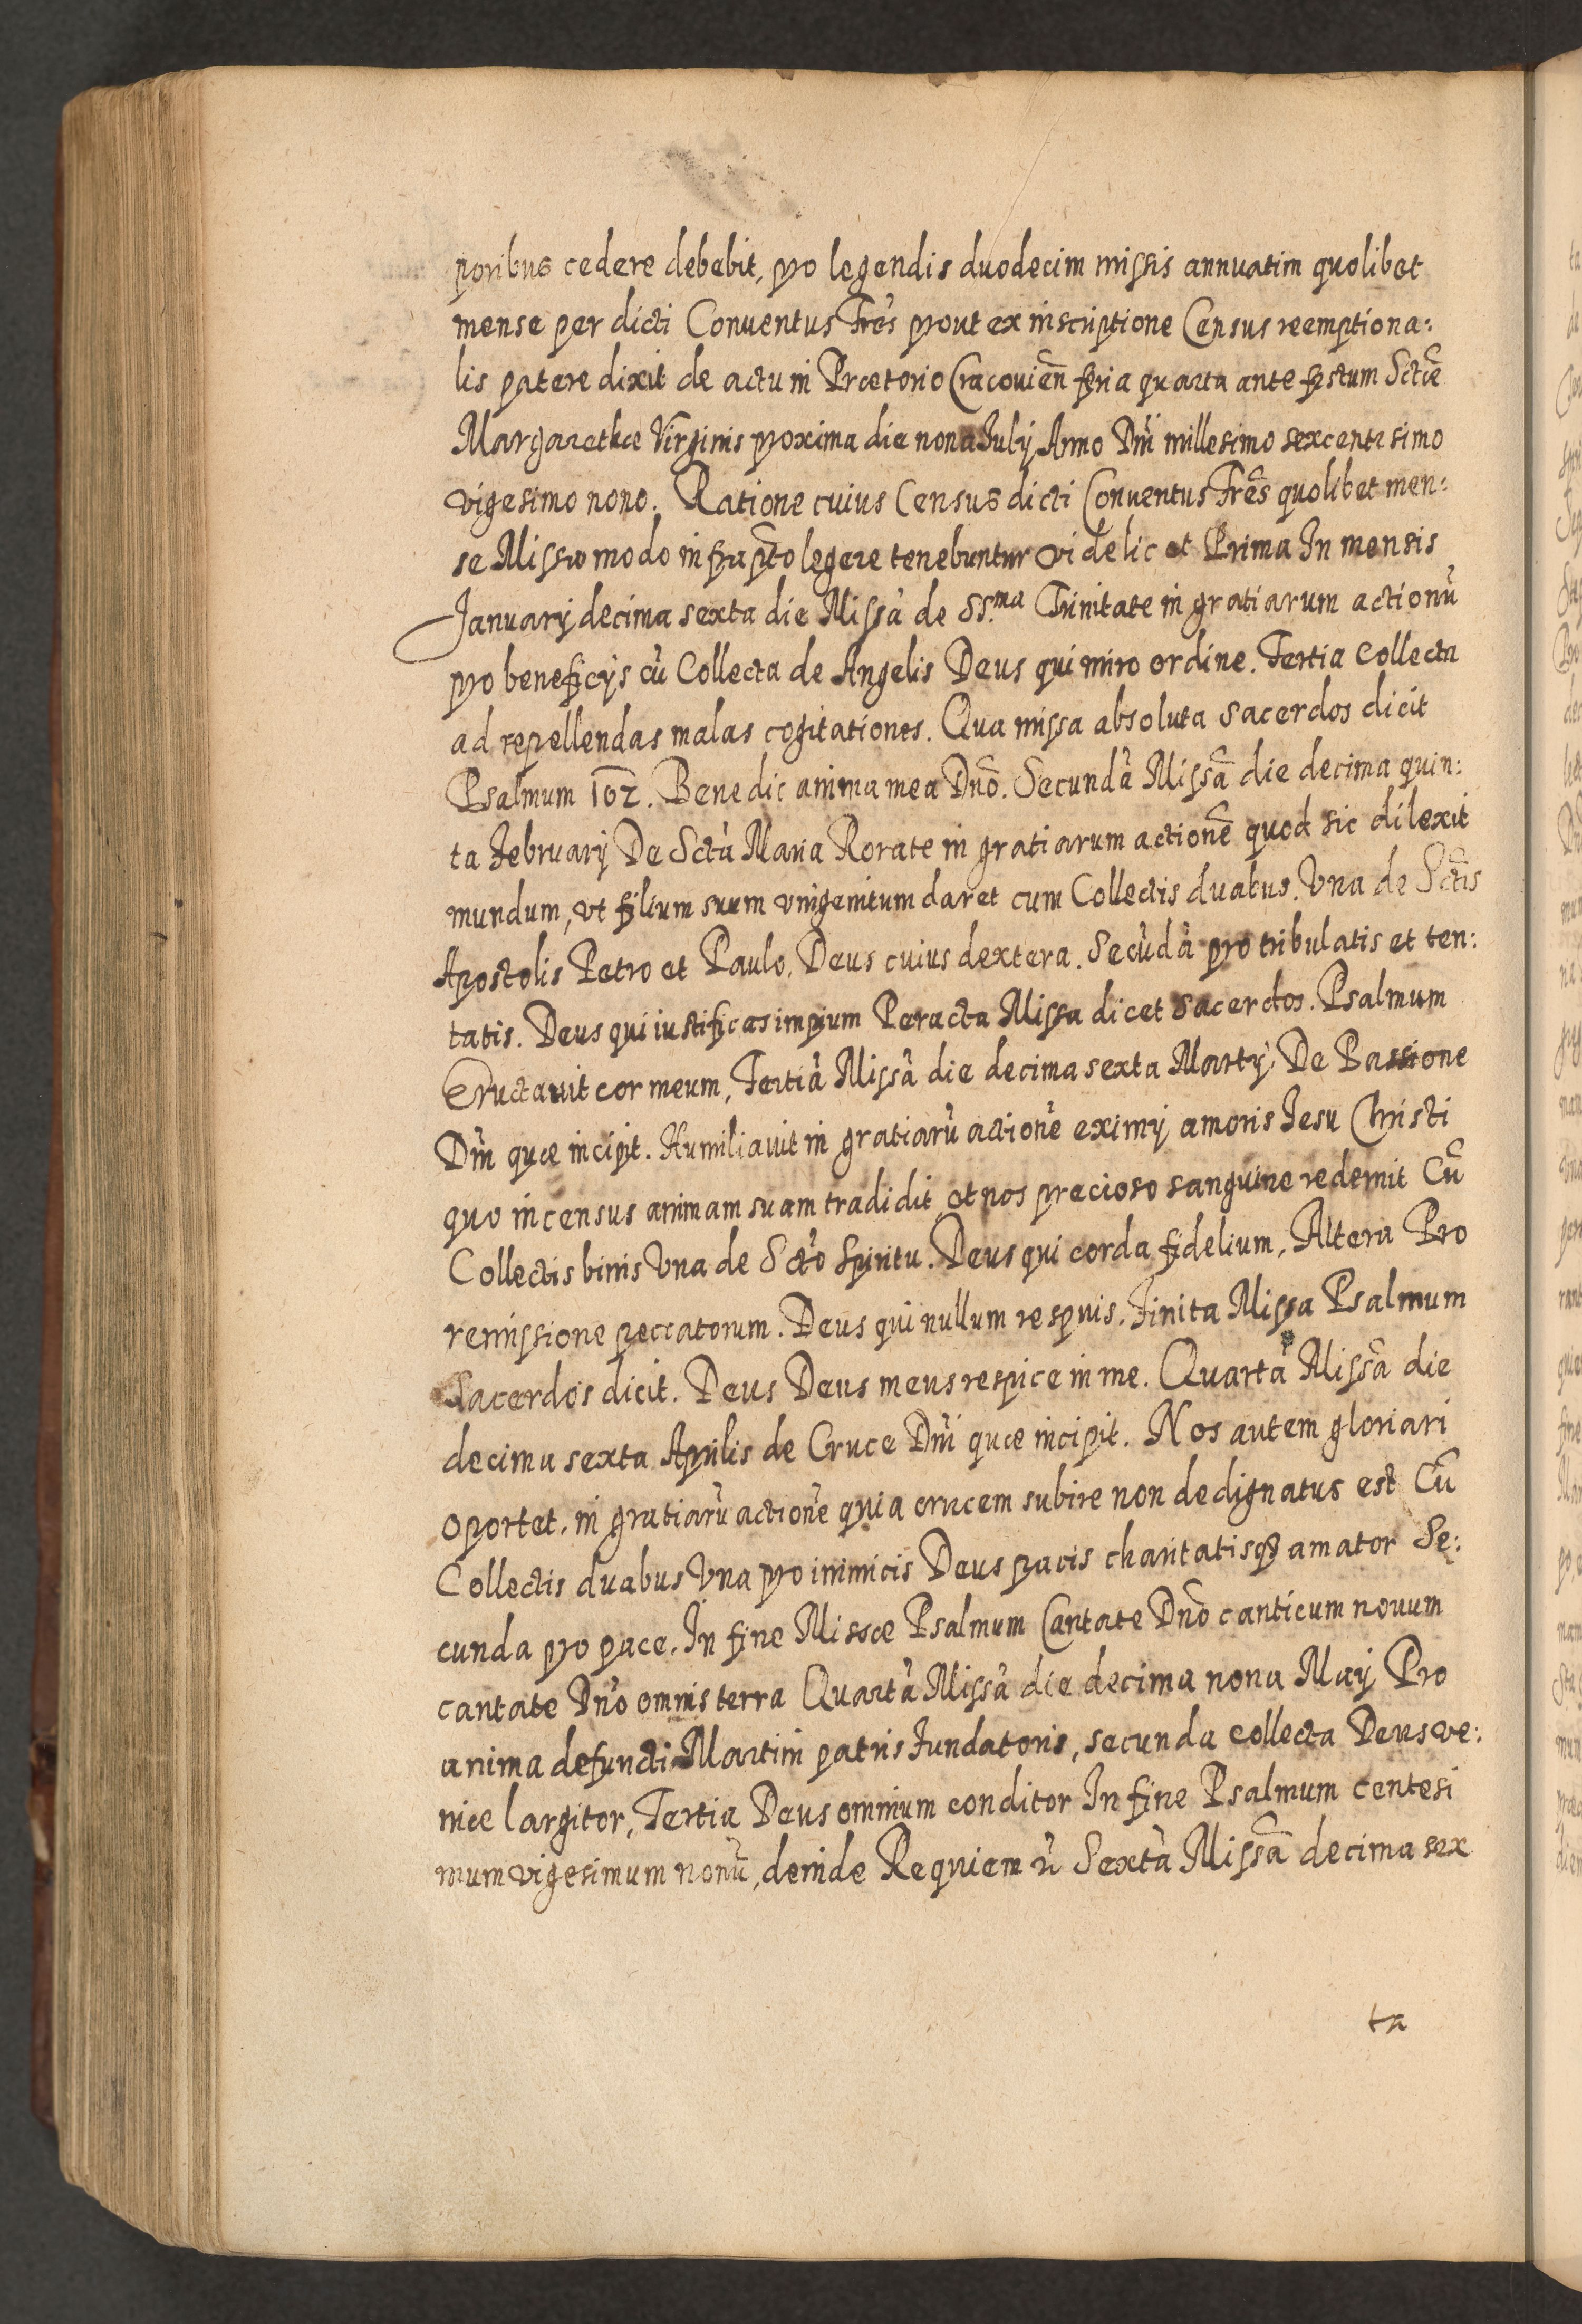 poribus cedere debebit, pro legendis duodecim missis annuatim quolibet
mense per dicti Conuentus Frẽs prout ex inscriptione Census reemptiona:
lis patere dixit de actu in Prætorio Cracouiẽn feria quarta ante festum Sctæ̃
Margarethæ Virginis proxima die nona July Anno Dñi millesimo sexcentesimo
vigesimo nono. Ratione cuius Census dicti Conuentus Frẽs quolibet men:
se Missas modo infrap̃to legere tenebuntur videlicet Prima In mensis
January decima sexta die Missã de SS.ma Trinitate in gratiarum actionẽ
pro beneficijs cũ Collecta de Angelis Deus qui miro ordine. Tertia collecta
ad repellendas malas cogitationes. Qua missa absoluta sacerdos dicit
Psalmum 102. Benedic anima mea Dnõ. Secundã Missã die decima quin:
ta February De Sctã Maria Rorate in gratiarum actionẽ quod sic dilexit
mundum, vt filium suum vnigenitum daret cum Collectis duabus. Vna de Sctĩs
Apostolis Petro et Paulo. Deus cuius dextera. Secũdã pro tribulatis et ten:
tatis. Deus qui iustificas impium Peracta Missa dicet sacerdos. Psalmum
Eructauit cor meum, Tertiã Missã die decima sexta Martÿ De Passione
Dñi quæ incipit. Humiliauit in gratiarũ actionẽ eximij amoris Iesu Christi
quo incensus animam suam tradidit et nos precioso sanguine redemit Cũ
Collectis binis Vna de Sctõ Spiritu. Deus qui corda fidelium, Altera Pro
remissione peccatorum. Deus qui nullum respuis. Finita Missa Psalmum
Sacerdos dicit. Deus Deus meus respice in me. Quartã Missã die
decima sexta Aprilis de Cruce Dñi quæ incipit. Nos autem gloriari
oportet. in gratiarũ actionẽ quia crucem subire non dedignatus est Cũ
Collectis duabus Vna pro inimicis Deus pacis charitatisq3 amator Se:
cunda pro pace. In fine Missæ Psalmum Cantate Dnõ canticum nouum
cantate Dnõ omnis terra Quartã Missã die decima nona May Pro
anima defuncti Martini patris Fundatoris, secunda collecta Deus ve:
niæ largitor, Tertia Deus omnium conditor In fine Psalmum centesi
mum vigesimum nonũ, deinde Requiem ũ Sextã Missã decima sex
ta